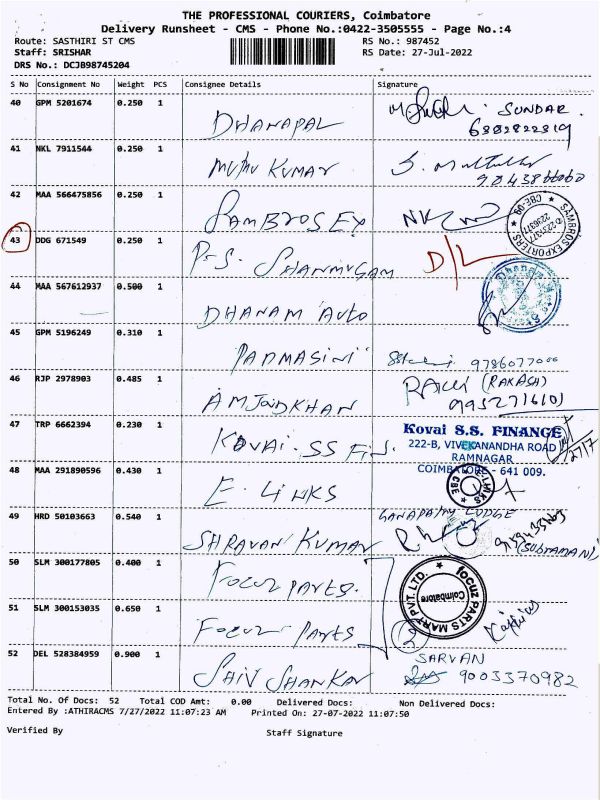 THE PROFESSIONAL COURIERS, Coimbatore
Delivery Runsheet - CMS - Phone No.:0422-3505555 - Page No.:4
Route: SASTHIRI ST CMS RS No.: 987452
Staff: SRISHAR RS Date: 27-Jul-2022
DRS No.: DCJB98745204
S No Consignment No Weight PCS Consignee Details Signature
40 GPM 5201674 0.250 1 DHANAPAL SUNDAR
6382822319
41 NKL 7911544 0.250 1 MUTHU KUMAR
42 MAA 566475856 0.250 1 SAMBROS EX
SAMBROS EXPORTERS CBE-09
43 DDG 671549 0.250 1 P.S. SHANMUGAM D/L
44 MAA 567612937 0.500 1 DHANAM AUTO
45 GPM 5196249 0.310 1 PADMASINI 9786077000
46 RJP 2978903 0.485 1 AMJADKHAN (RAKASH)
9952716101
47 TRP 6662394 0.230 1 KOVAI. SS Fin.
Kovai S.S. FINANCE
222-B, VIVEKANANDHA ROAD
RAMNAGAR
COIMBATORE - 641 009.
27/7
48 MAA 291890596 0.430 1 E LINKS
E-LINKS CBE
49 HRD 50103663 0.540 1 SHRAVAN KUMAR GANAPATHY LODGE
(SUBRAMANI)
50 SLM 300177805 0.400 1 FOCUZ PARTS.
focuz PARTS MART PVT. LTD. Coimbatore
51 SLM 300153035 0.650 1 FOCUZ PARTS 2
52 DEL 528384959 0.900 1 SHIV SHANKAR SARVAN
9003370982
Total No. Of Docs: 52 Total COD Amt: 0.00 Delivered Docs: Non Delivered Docs:
Entered By :ATHIRACMS 7/27/2022 11:07:23 AM Printed On: 27-07-2022 11:07:50
Verified By Staff Signature